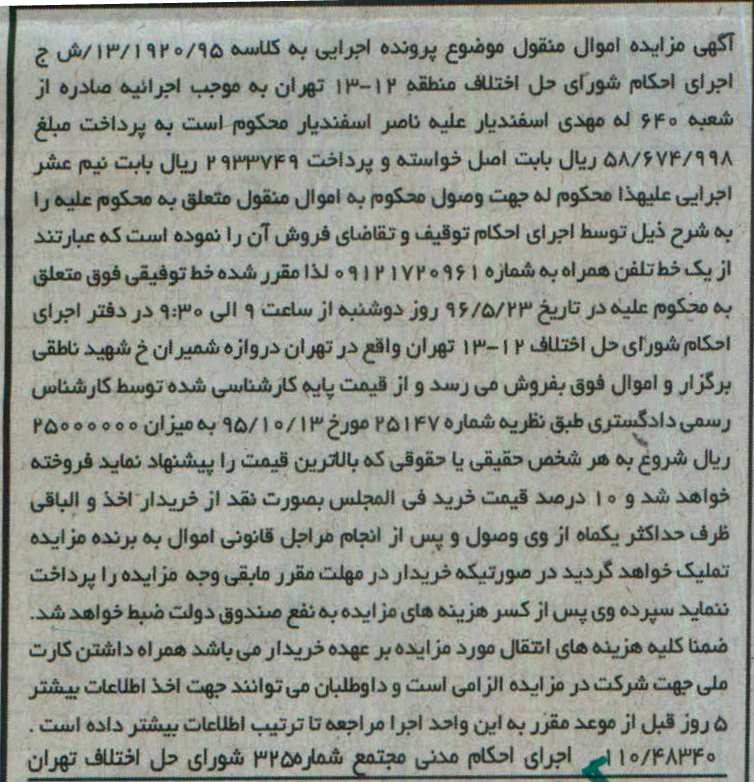 آگهی مزایده اموال منقول موضوع پرونده اجرایی به کلاسه ۱۳/۱۹۲۰/۹۵/ش ج
اجرای احکام شورای حل اختلاف منطقه ۱۲-۱۳ تهران به موجب اجرائیه صادره از
شعبه ۶۴۰ له مهدی اسفندیار علیه ناصر اسفندیار محکوم است به پرداخت مبلغ
۵۸/۶۷۴/۹۹۸ ریال بابت اصل خواسته و پرداخت ۲۹۳۳۷۴۹ ریال بابت نیم عشر
اجرایی علیهذا محکوم له جهت وصول محکوم به اموال منقول متعلق به محکوم علیه را
به شرح ذیل توسط اجرای احکام توقیف و تقاضای فروش آن را نموده است که عبارتند
از یک خط تلفن همراه به شماره ۰۹۱۲۱۷۲۰۹۶۱ لذا مقرر شده خط توفیقی فوق متعلق
به محکوم علیه در تاریخ ۹۶/۵/۲۳ روز دوشنبه از ساعت ۹ الی ۹:۳۰ در دفتر اجرای
احکام شورای حل اختلاف ۱۲-۱۳ تهران واقع در تهران دروازه شمیران خ شهید ناطقی
برگزار و اموال فوق بفروش می رسد و از قیمت پایه کارشناسی شده توسط کارشناس
رسمی دادگستری طبق نظریه شماره ۲۵۱۴۷ مورخ ۹۵/۱۰/۱۳ به میزان ۲۵۰۰۰۰۰۰
ریال شروع به هر شخص حقیقی یا حقوقی که بالاترین قیمت را پیشنهاد نماید فروخته
خواهد شد و ۱۰ درصد قیمت خرید فی المجلس بصورت نقد از خریدار اخذ و الباقی
ظرف حداکثر یکماه از وی وصول و پس از انجام مراجل قانونی اموال به برنده مزایده
تملیک خواهد گردید در صورتیکه خریدار در مهلت مقرر مابقی وجه مزایده را پرداخت
ننماید سپرده وی پس از کسر هزینه های مزایده به نفع صندوق دولت ضبط خواهد شد.
ضمنا کلیه هزینه های انتقال مورد مزایده بر عهده خریدار می باشد همراه داشتن کارت
ملی جهت شرکت در مزایده الزامی است و داوطلبان می توانند جهت اخذ اطلاعات بیشتر
۵ روز قبل از موعد مقرر به این واحد اجرا مراجعه تا ترتیب اطلاعات بیشتر داده است .
۱۱۰/۴۸۳۴۰ اجرای احکام مدنی مجتمع شماره۳۲۵ شورای حل اختلاف تهران